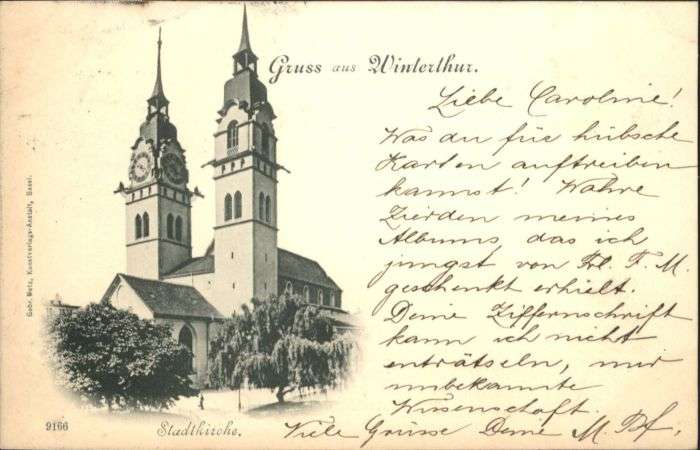 Gruss aus Winterthur.
Liebe Caroline!
Was du für hübsche
Karten auftreiben
kannst! Wahre
Zierden meines
Albums, das ich
jüngst von Frl. F. M.
geschenkt erhielt.
Deine Ziffernschrift
kann ich nicht
enträtseln, mir
unbekannte
Wissenschaft.
Viele Grüsse Deine M. Bf.
Gebr. Metz, Kunstverlags-Anstalt, Basel.
9166
Stadtkirche.